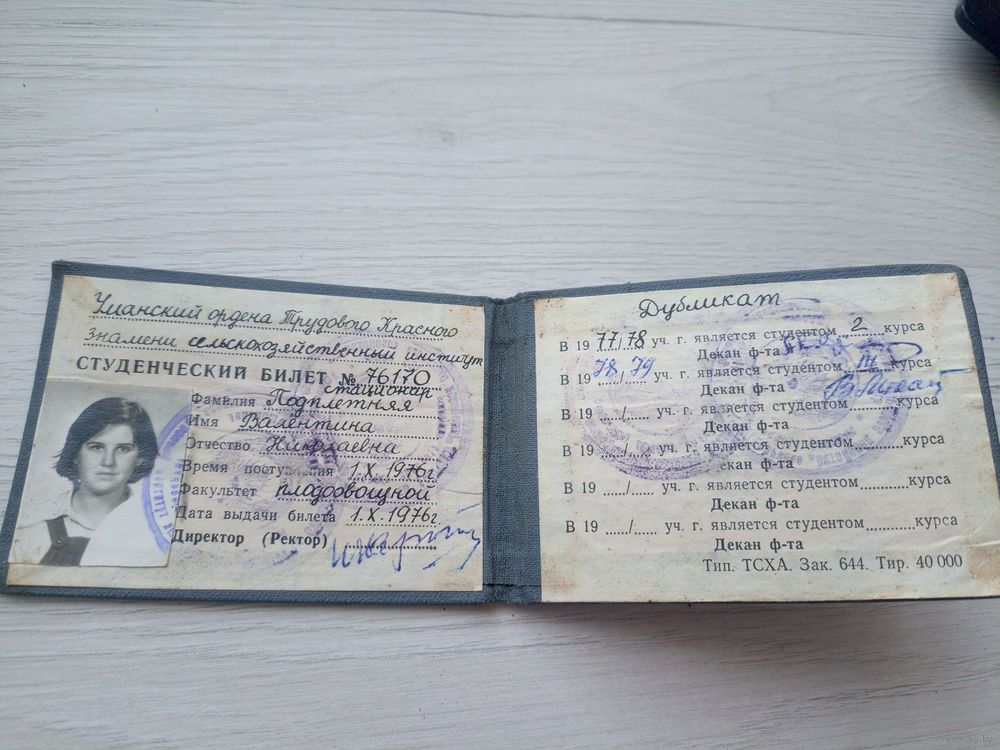 Уманский ордена Трудового Красного
знамени сельскохозяйственный институт
СТУДЕНЧЕСКИЙ БИЛЕТ № 76170
стационар
Фамилия Подплетняя
Имя Валентина
Отчество Николаевна
Время поступления 1.X.1976г
Факультет плодоовощной
Дата выдачи билета 1.X.1976г
Директор (Ректор)
Дубликат
В 1977/78 уч. г. является студентом 2 курса
Декан ф-та
В 1978/79 уч. г. является студентом III курса
Декан ф-та
В 19 ..../..... уч. г. является студентом..........курса
Декан ф-та
В 19 ..../..... уч. г. является студентом..........курса
Декан ф-та
В 19 ..../..... уч. г. является студентом..........курса
Декан ф-та
В 19 ..../..... уч. г. является студентом..........курса
Декан ф-та
Тип. ТСХА. Зак. 644. Тир. 40 000